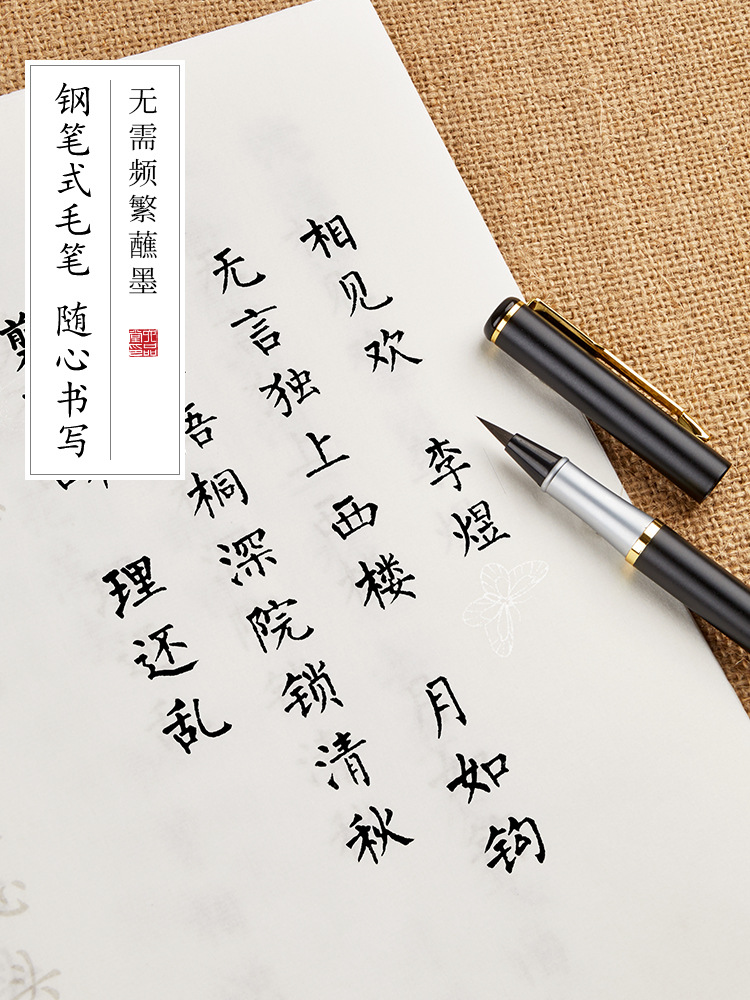 无需频繁蘸墨
钢笔式毛笔 随心书写
相见欢 李煜
无言独上西楼 月如钩
桐深院锁清秋
理还乱